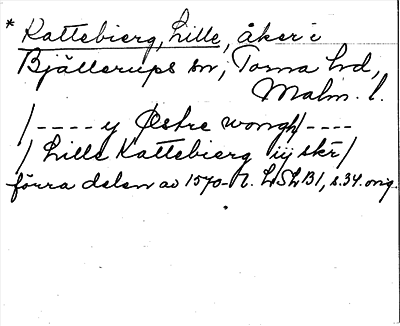 * Kattebierg, Lille, åker i
Bjällerups sn, Torna hd,
Malm. l.
/---- y Østre wongh/----
/ Lille Kattebierg iij skr/
förra delen av 1570-t. LSLB1, s.34. orig.